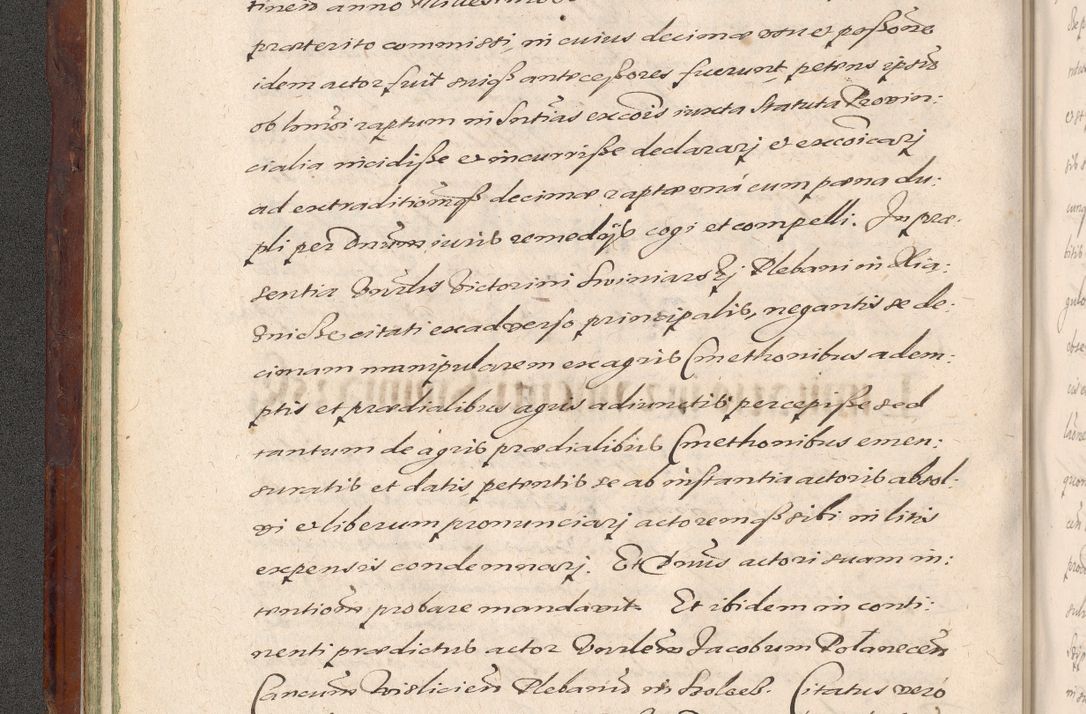 præterito commissi, in cuius decimæ usu et possōne
idem actor fuit suiq́ antecessores fuerunt petens ipsū
ob hmōi raptum in sntīas excōis iuxta statuta Provin:
cialia incidisse et incurrisse declararj et excōicarj
ad extraditionemq́ decimæ raptæ uná cum pœna du:
pli per Dnum iuris remedijs cogi et compelli. In præ:
sentia Vnrlis Victorini Swiniarskj Plebani in
citati ex adverso principalis, negantis se de:
cimam manipularem ex agris Cmethonibus adem:
ptis et prædialibus agris adiunctis percepisse sed
tantum de agris prædialibus Cmethonibus emen:
suratis et datis petentis se ab instantia actoris absol:
vi et liberum pronunciarj actoremq́ sibi in litis
expensis condemnarj. Et Dnus actori suam in:
tentionē probare mandavit. Et ibidem in conti:
nenti prædictus actor Vnrlem Jacobum Polanecen̄
Canēum Wislicien̄ Plebanū in Citatus vero